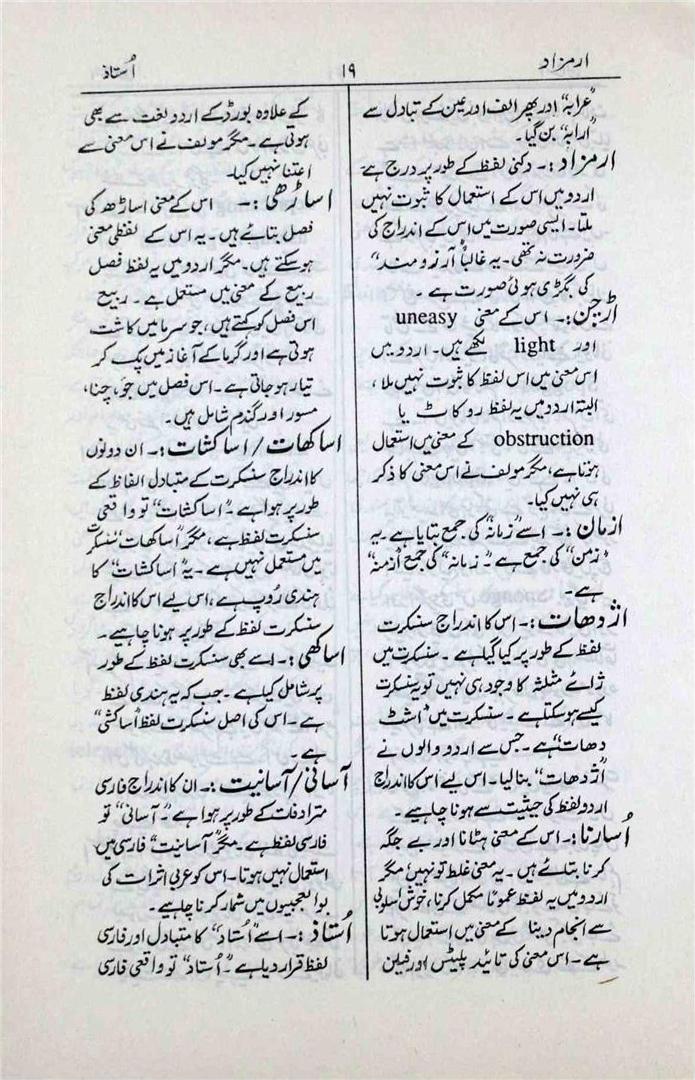 ارمزاد
۱۹
اُستاذ
”عرابہ“ اور پھر الف اور عین کے تبادل سے
”ارابہ“ بن گیا۔
ارمزاد:۔ دکنی لفظ کے طور پر درج ہے۔
اردو میں اس کے استعمال کا ثبوت نہیں
ملتا۔ ایسی صورت میں اس کے اندراج کی
ضرورت نہ تھی۔ یہ غالباً ”آرزومند“
کی بگڑی ہوئی صورت ہے۔
اڑچن:۔ اس کے معنی uneasy
اور light لکھے ہیں۔ اردو میں
اس معنی میں اس لفظ کا ثبوت نہیں ملا،
البتہ اردو میں یہ لفظ روکاٹ یا
obstruction کے معنی میں استعمال
ہوتا ہے، مگر مولف نے اس معنی کا ذکر
ہی نہیں کیا۔
ازمان:۔ اسے ”زمانہ“ کی جمع بتایا ہے۔ یہ
”زمن“ کی جمع ہے۔ ”زمانہ“ کی جمع ”ازمنہ“
ہے۔
اژدھات:۔ اس کا اندراج سنسکرت
لفظ کے طور پر کیا گیا ہے۔ سنسکرت میں
ژائے مثلثہ کا وجود ہی نہیں تو یہ سنسکرت
کیسے ہوسکتا ہے۔ سنسکرت میں ”اشٹ
دھات“ ہے۔ جس سے اردو والوں نے
”اژدھات“ بنالیا۔ اس لیے اس کا اندراج
اردو لفظ کی حیثیت سے ہونا چاہیے۔
اُسارنا:۔ اس کے معنی ہٹانا اور بے جگہ
کرنا بتائے ہیں۔ یہ معنی غلط تو نہیں مگر
اردو میں یہ لفظ عموماً مکمل کرنا، خوش اسلوبی
سے انجام دینا کے معنی میں استعمال ہوتا
ہے۔ اس معنی کی تائید پلیٹس اور فیلن
کے علاوہ بورڈ کے اردو لغت سے بھی
ہوتی ہے۔ مگر مولف نے اس معنی سے
اعتنا نہیں کیا۔
اساڑھی:۔ اس کے معنی اساڑھ کی
فصل بتائے ہیں۔ یہ اس کے لفظی معنی
ہوسکتے ہیں۔ مگر اردو میں یہ لفظ فصل
ربیع کے معنی میں مستعمل ہے۔ ربیع
اس فصل کو کہتے ہیں، جو سرما میں کاشت
ہوتی ہے اور گرما کے آغاز میں پک کر
تیار ہوجاتی ہے۔ اس فصل میں جَو، چنا،
مسور اور گندم شامل ہیں۔
اساکھات/اساکشات:۔ ان دونوں
کا اندراج سنسکرت کے متبادل الفاظ کے
طور پر ہوا ہے۔ ”اساکشات“ تو واقعی
سنسکرت لفظ ہے، مگر ”اساکھات“ سنسکرت
میں مستعمل نہیں ہے۔ یہ ”اساکشات“ کا
ہندی رُوپ ہے، اس لیے اس کا اندراج
سنسکرت لفظ کے طور پر ہونا چاہیے۔
اساکھی:۔ اسے بھی سنسکرت لفظ کے طور
پر شامل کیا ہے۔ جب کہ یہ ہندی لفظ
ہے۔ اس کی اصل سنسکرت لفظ ”اساکشی“
ہے۔
آسانی/آسانیت:۔ ان کا اندراج فارسی
مترادفات کے طور پر ہوا ہے۔ ”آسانی“ تو
فارسی لفظ ہے۔ مگر ”آسانیت“ فارسی میں
استعمال نہیں ہوتا۔ اس کو عربی اثرات کی
بوالعجبیوں میں شمار کرنا چاہیے۔
اُستاذ:۔ اسے ”اُستاد“ کا متبادل اور فارسی
لفظ قرار دیا ہے۔ ”اُستاد“ تو واقعی فارسی